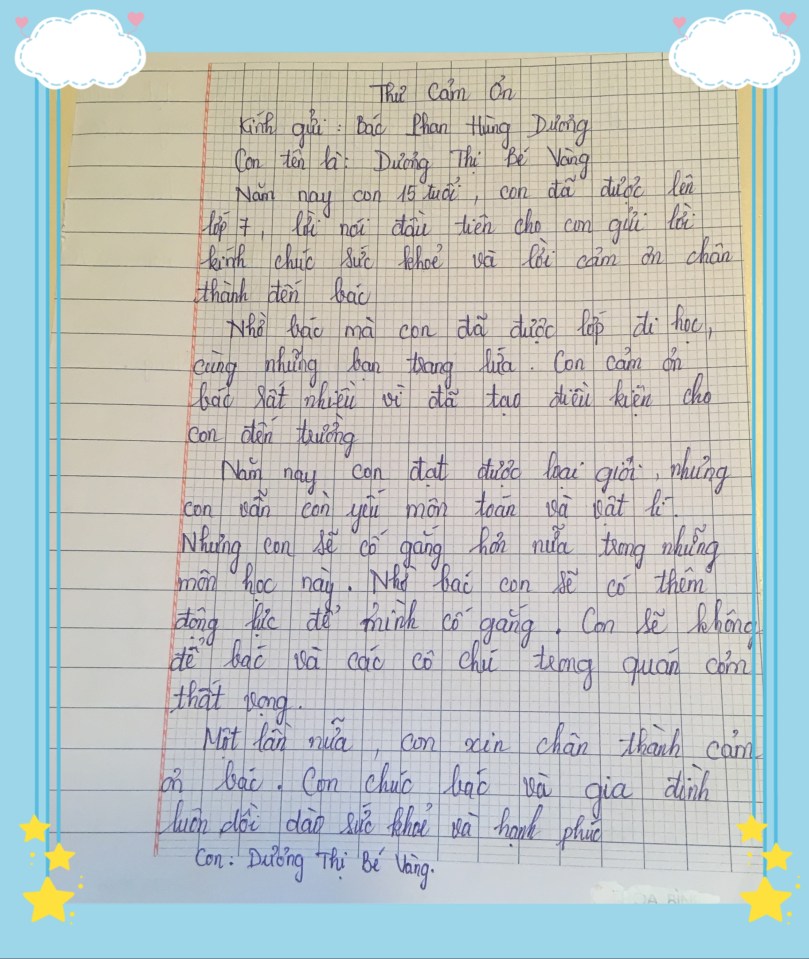 Thư Cảm Ơn
Kính gửi: Bác Phan Hùng Dương
Con tên là: Dương Thị Bé Vàng
Năm nay con 15 tuổi, con đã được lên
lớp 7, lời nói đầu tiên cho con gửi lời
kính chúc sức khoẻ và lời cảm ơn chân
thành đến bác
Nhờ bác mà con đã được lớp đi học,
cùng những bạn trang lứa. Con cảm ơn
bác sất nhiều vì đã tao điều kiện cho
con đến trường
Năm nay con đạt được loại giỏi, nhưng
con vẫn còn yếu môn toán và vật lí.
Nhưng con sẽ cố gắng hơn nữa trong những
môn học này. Nhờ bác con sẽ có thêm
động lực để mình cố gắng. Con sẽ không
để bác và các cô chú trong quán cơm
thất vọng.
Một lần nữa, con xin chân thành cảm
ơn bác. Con chúc bác và gia đình
luôn dồi dào sức khoẻ và hạnh phúc
Con: Dương Thị Bé Vàng.